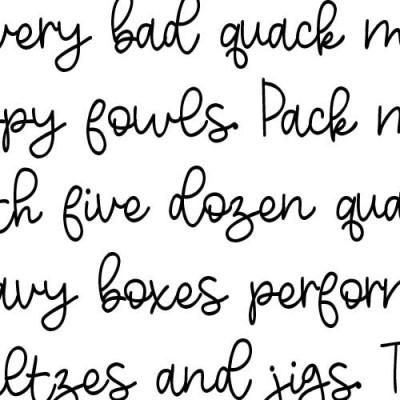 very bad quack m
ppy fowls. Pack m
th five dozen qua
avy boxes perform
altzes and jigs. T